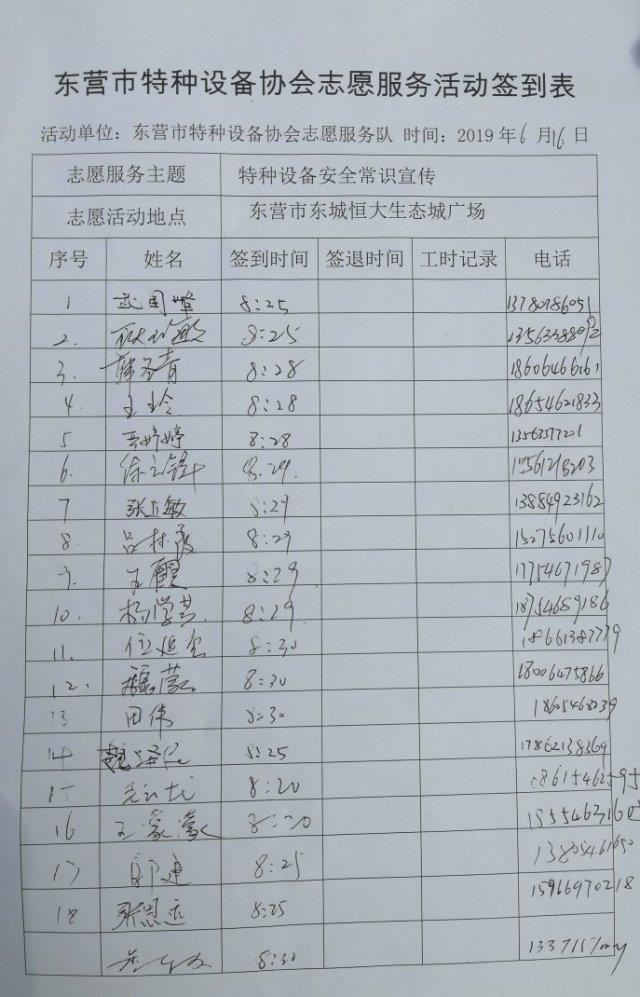 东营市特种设备协会志愿服务活动签到表
活动单位：东营市特种设备协会志愿服务队 时间：2019年6月16日
志愿服务主题 特种设备安全常识宣传
志愿活动地点 东营市东城恒大生态城广场
序号 姓名 签到时间 签退时间 工时记录 电话
1 武国峰 8:25 13780786051
2. 8:25
3. 8:28 18606466161
4. 王玲 8:28 18654621833
5 婷婷 8:28 13563577201
6. 徐立锋 8:29.
7 张立敏 8:29 13884923162
8. 吕林霞 8:29 15275601110
9. 王霞 8:29 17754671987
10. 杨学芸 8:29 18754689186
11. 位延 8:30 18661387779
12. 8:30 18006475866
13 田伟 8:30
14 魏 8:25 17862138369
15 8:20 18615462595
16 王蒙蒙 8:20
17 郭建 8:25 13805461650
18 张思远 8:25 15966970218
8:30